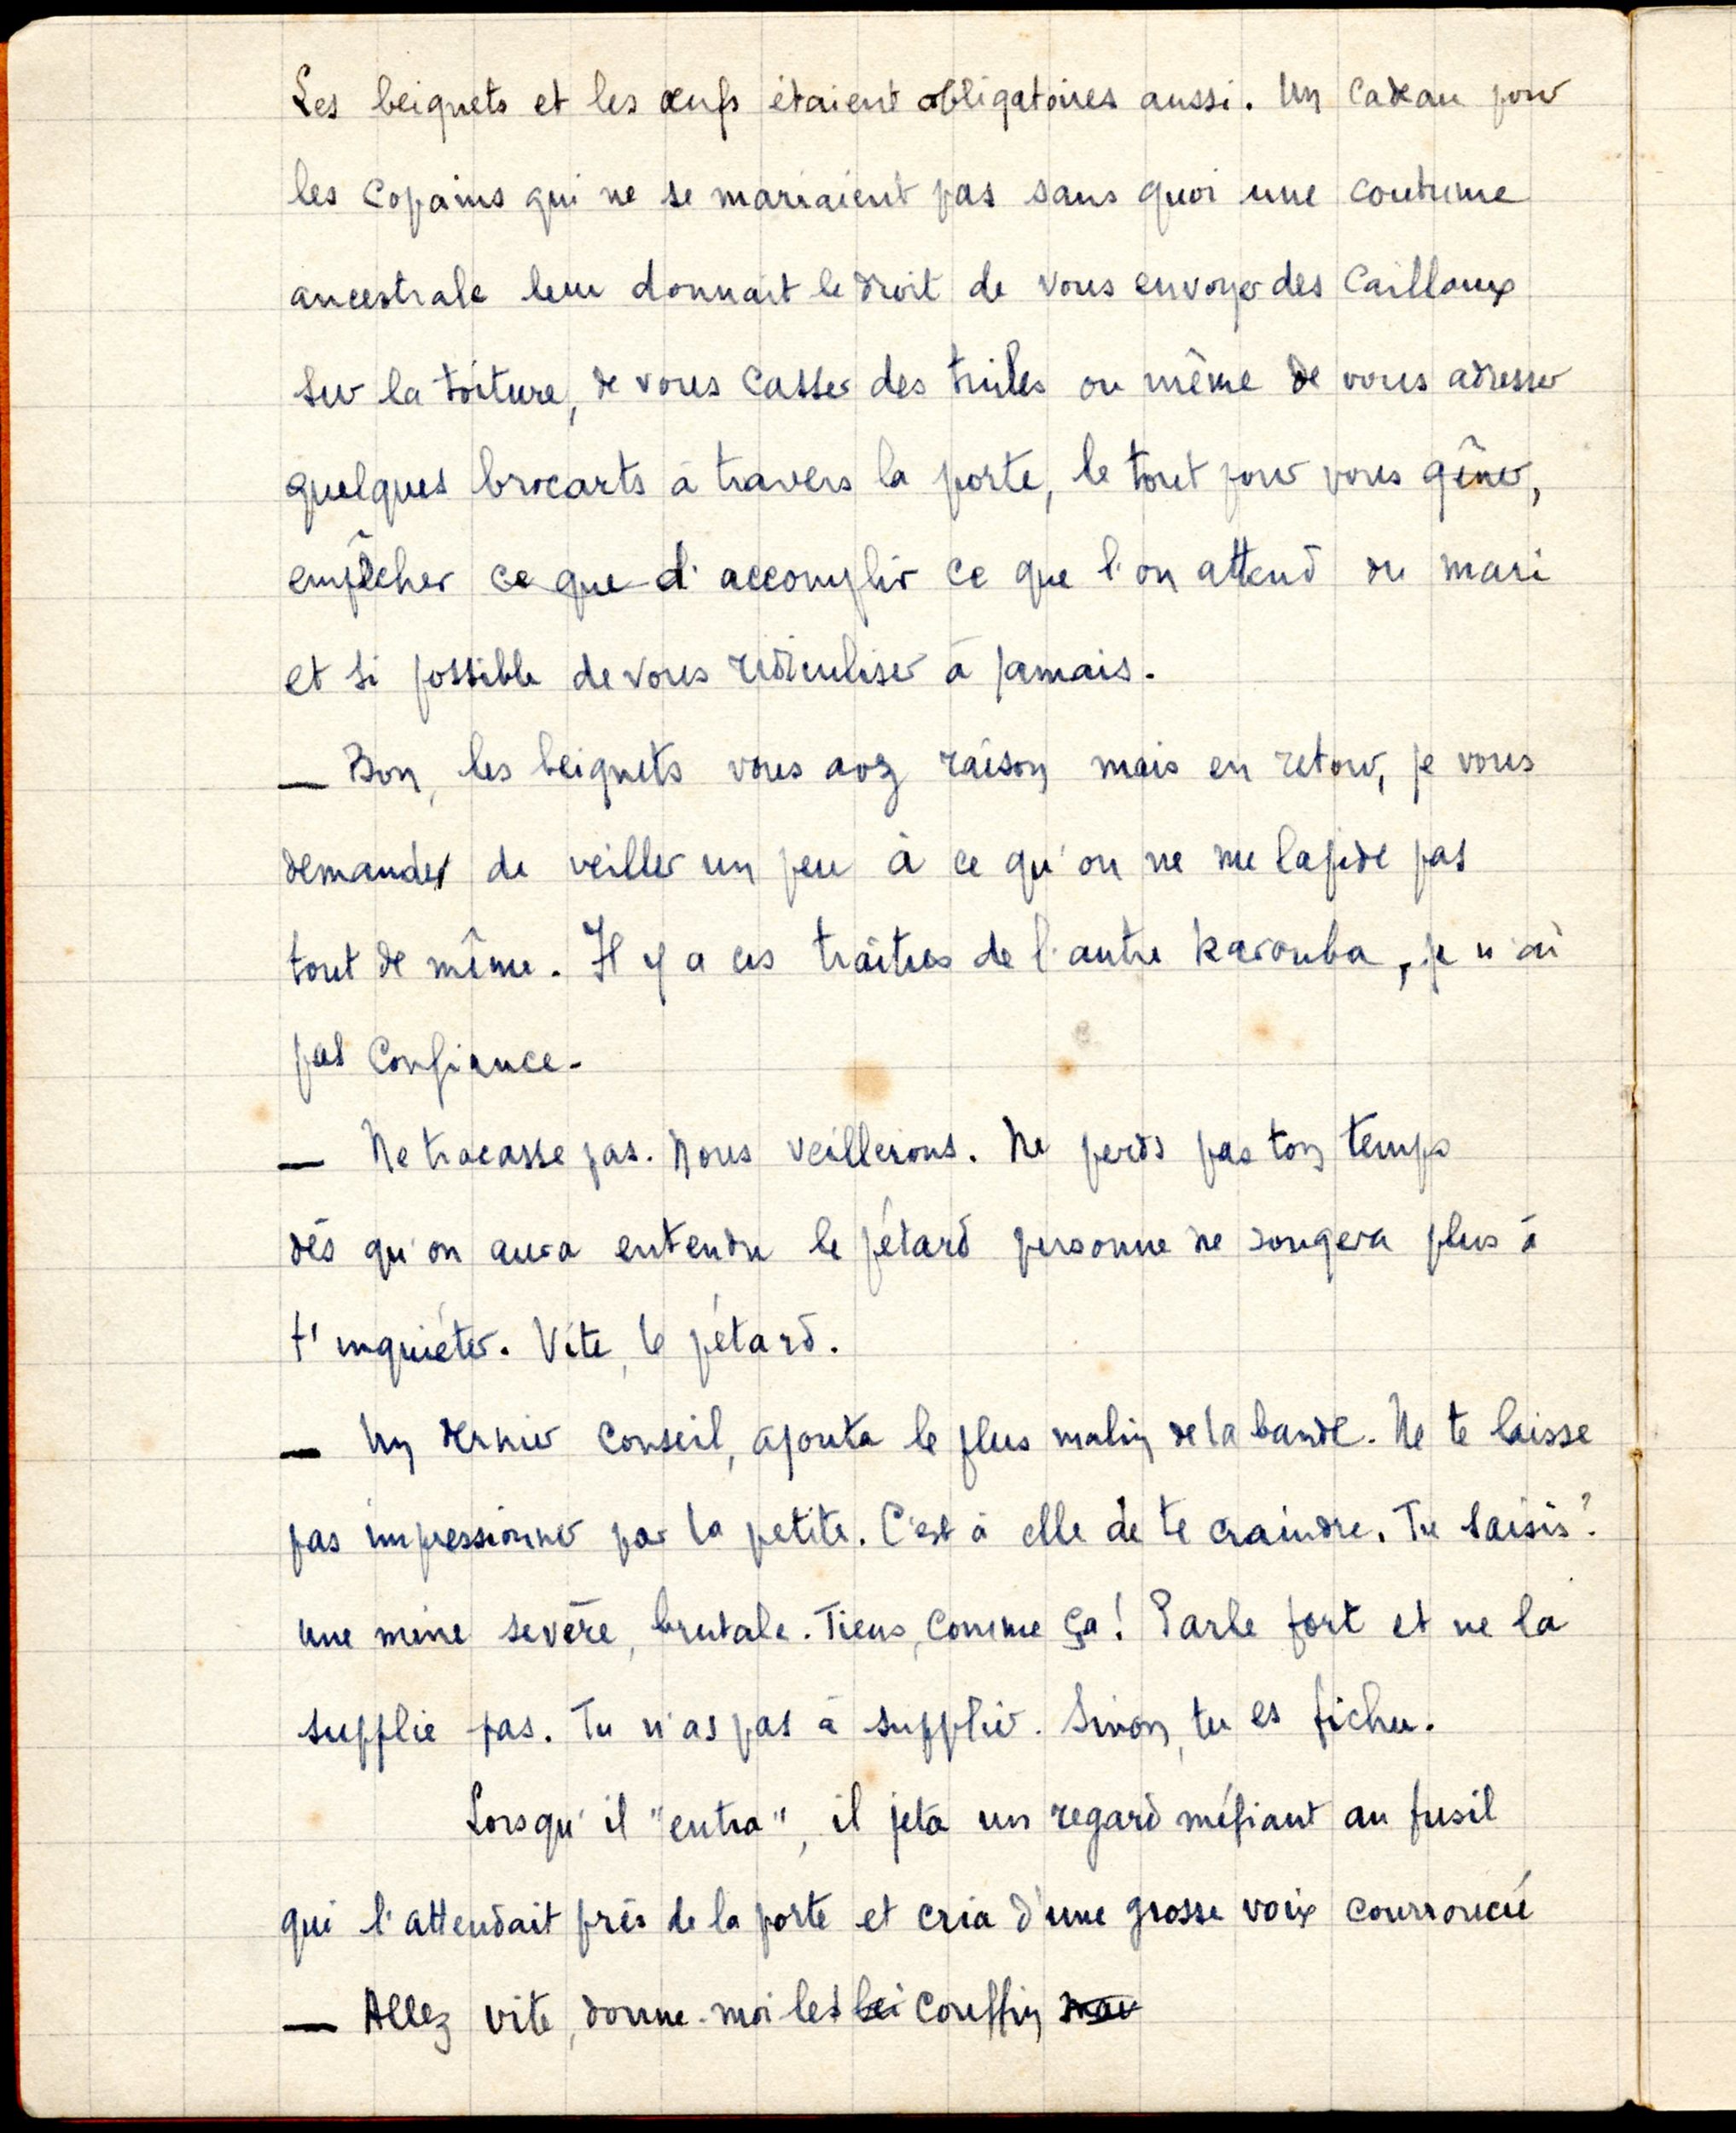 Les beignets et les œufs étaient obligatoires aussi. Un cadeau pour
les copains qui ne se mariaient pas sans quoi une coutume
ancestrale leur donnait le droit de vous envoyer des cailloux
sur la toiture, de vous casser des tuiles ou même de vous adresser
quelques brocarts à travers la porte, le tout pour vous gêner,
empêcher ce que d'accomplir ce que l'on attend du mari
et si possible de vous ridiculiser à jamais.
— Bon, les beignets vous avez raison mais en retour, je vous
demander de veiller un peu à ce qu'on ne me lapide pas
tout de même. Il y a ces traîtres de l'autre karouba, je n'ai
pas confiance.
— Ne tracasse pas. Nous veillerons. Ne perds pas ton temps
dès qu'on aura entendu le pétard personne ne songera plus à
t'inquiéter. Vite, le pétard.
— Un dernier conseil, ajouta le plus malin de la bande. Ne te laisse
pas impressionner par la petite. C'est à elle de te craindre. Tu saisis?
une mine sevère, brutale. Tiens, comme ça! Parle fort et ne la
supplie pas. Tu n'as pas à supplier. Sinon, tu es fichu.
Lorsqu'il "entra", il jeta un regard méfiant au fusil
qui l'attendait près de la porte et cria d'une grosse voix courroucée
— Allez vite, donne-moi les bei couffin